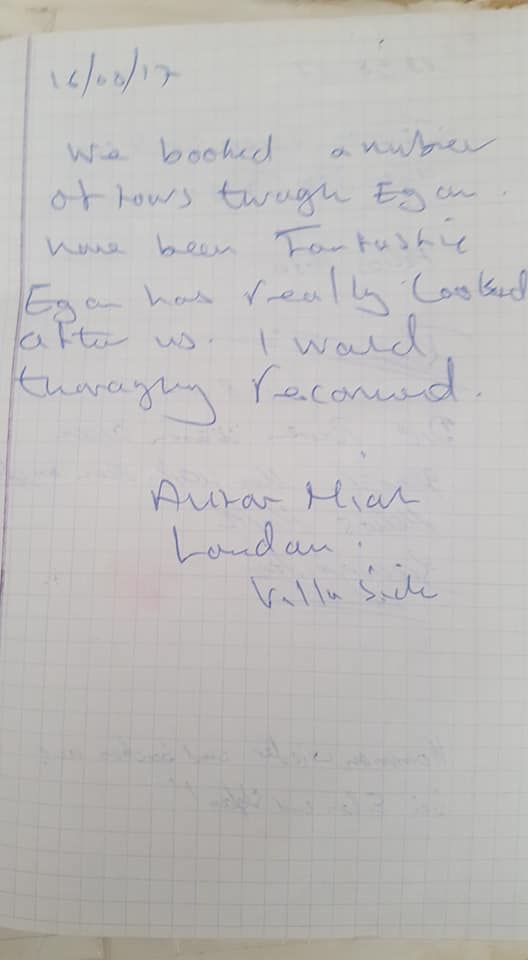 16/08/17
We booked a number
of tours through Egan.
have been Fantastic
Egan has really looked
after us. I would
thoroughly recommend.
Miah
London.
Villa Side